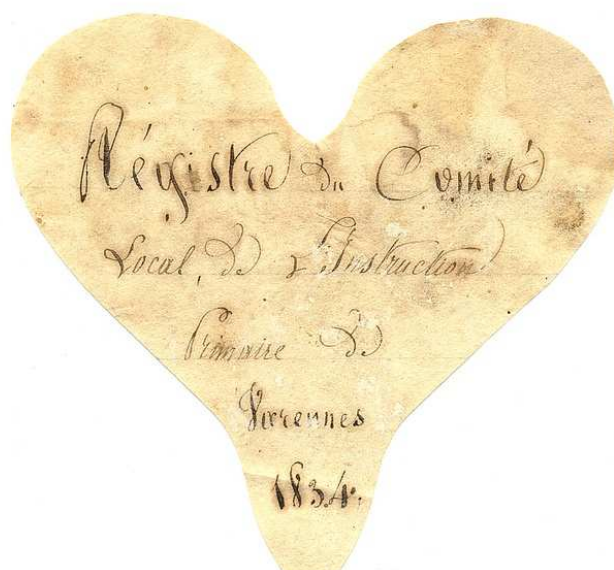 Régistre du Comité
Local, de L'Instruction
Primaire de
Varennes
1834.